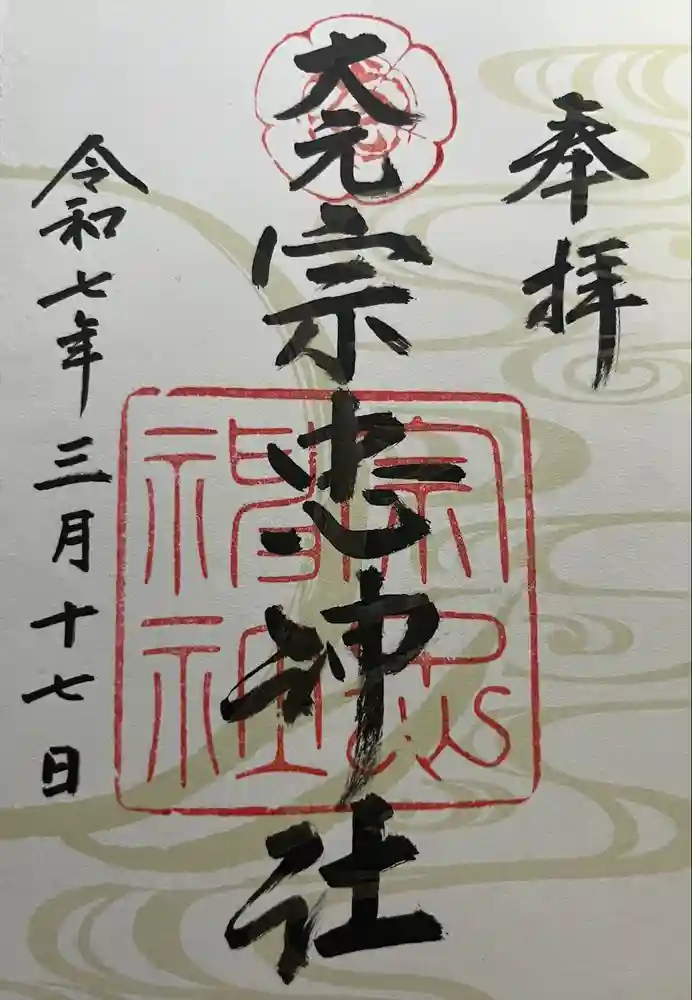 奉拝
大元宗忠神社
宗忠
神社
令和七年三月十七日